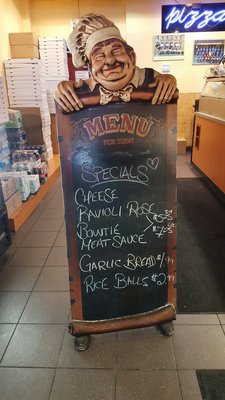 pizza
MENU
FOR TODAY
SPECIALS
CHEESE
RAVIOLI ROSE
BOWTIE
MEAT SAUCE
GARLIC BREAD $1.99
RICE BALLS $2.99